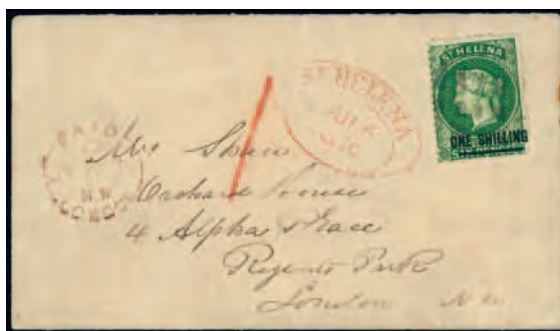 ST HELENA
ST HELENA
ONE SHILLING
PAID
N.W.
LONDON
Mrs Shaw
Orchard House
4 Alpha Place
Regents Park
London N W